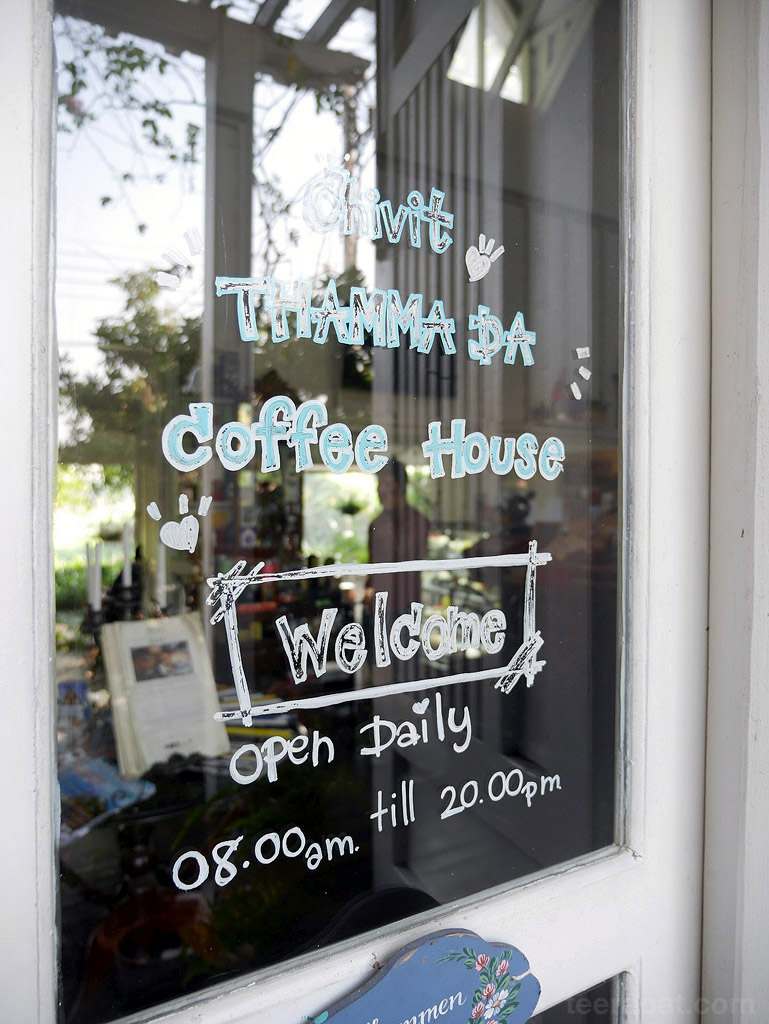 Chivit
THAMMA DA
Coffee House
Welcome
open Daily
08.00am. till 20.00pm
mmen
teerapat.com